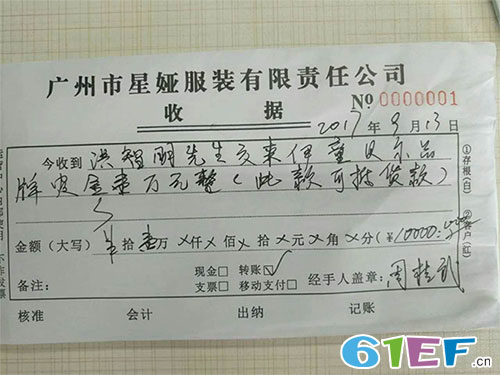 广州市星娅服装有限责任公司
收 据
№ 0000001
2017年9月13日
今收到 洪智明先生交来伊童贝尔品
牌定金壹万元整(此款可抵货款)
金额(大写) 拾壹万×仟×佰×拾×元×角×分(¥10000.
现金□ 转账☑
备注: 支票□ 移动支付□ 经手人盖章: 周桂武
核准 会计 出纳 记账
①存根(白)
②客户(红)
61EF.cn